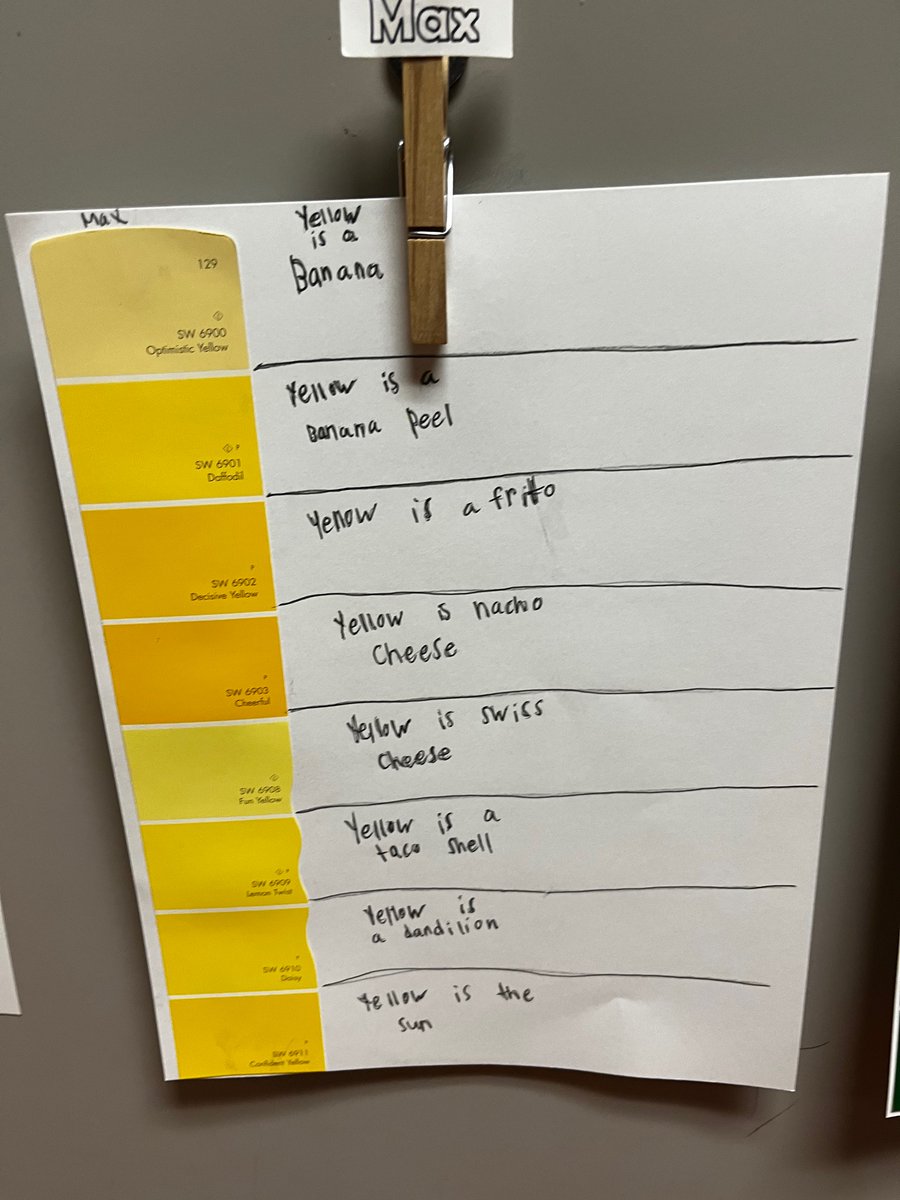 Max
Max
Yellow
is a
Banana
129
SW 6900
Optimistic Yellow
Yellow is a
Banana peel
P
SW 6901
Daffodil
Yellow is a frito
P
SW 6902
Decisive Yellow
Yellow is nacho
Cheese
P
SW 6903
Cheerful
Yellow is swiss
Cheese
SW 6908
Fun Yellow
Yellow is a
taco shell
P
SW 6909
Lemon Twist
Yellow is
a dandilion
P
SW 6910
Daisy
Yellow is the
sun
P
SW 6911
Confident Yellow